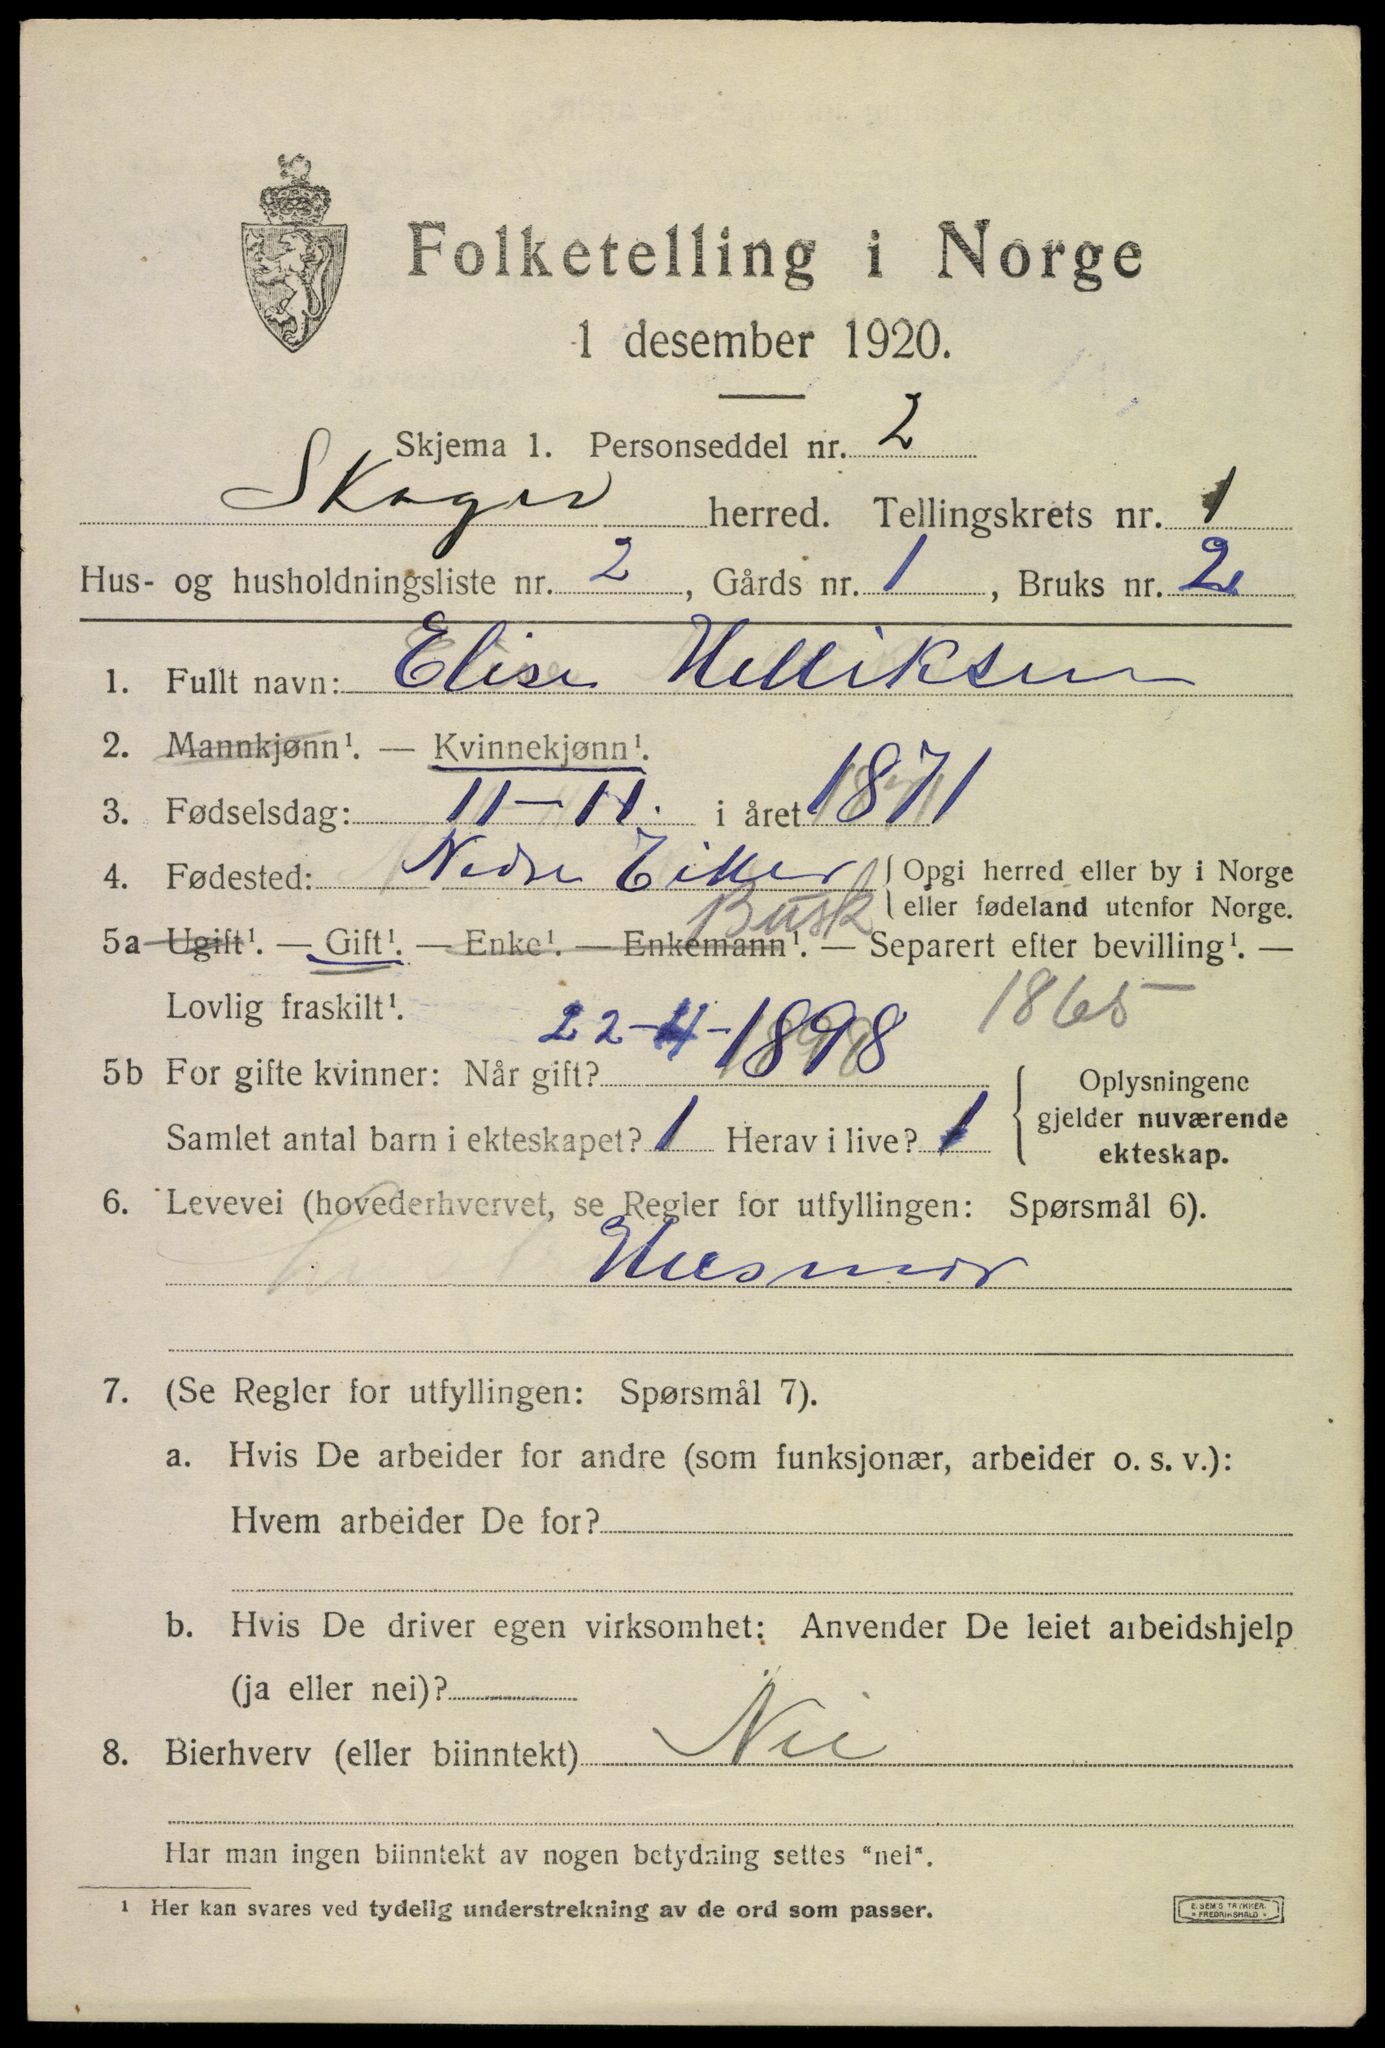 Folketelling i Norge
1 desember 1920.
Skjema 1. Personseddel nr. 2
Skoger herred. Tellingskrets nr. 1
Hus- og husholdningsliste nr. 2, Gårds nr. 1, Bruks nr. 2
1. Fullt navn: Elise Helliksen
2. Mannkjønn¹. — Kvinnekjønn¹.
3. Fødselsdag: 11-11. i året 1871
4. Fødested: Nedre Eiker { Opgi herred eller by i Norge
Busk { eller fødeland utenfor Norge.
5a Ugift¹. — Gift¹. — Enke¹. — Enkemann¹. — Separert efter bevilling¹. —
Lovlig fraskilt¹. 1865
22-4-1898
5b For gifte kvinner: Når gift? Oplysningene
Samlet antal barn i ekteskapet? 1 Herav i live? 1 gjelder nuværende
ekteskap.
6. Levevei (hovederhvervet, se Regler for utfyllingen: Spørsmål 6).
Husmor
7. (Se Regler for utfyllingen: Spørsmål 7).
a. Hvis De arbeider for andre (som funksjonær, arbeider o. s. v.):
Hvem arbeider De for?
b. Hvis De driver egen virksomhet: Anvender De leiet arbeidshjelp
(ja eller nei)?
8. Bierhverv (eller biinntekt) Nei
Har man ingen biinntekt av nogen betydning settes "nei".
¹ Her kan svares ved tydelig understrekning av de ord som passer.
E. SEM'S TRYKKERI
FREDRIKSHALD